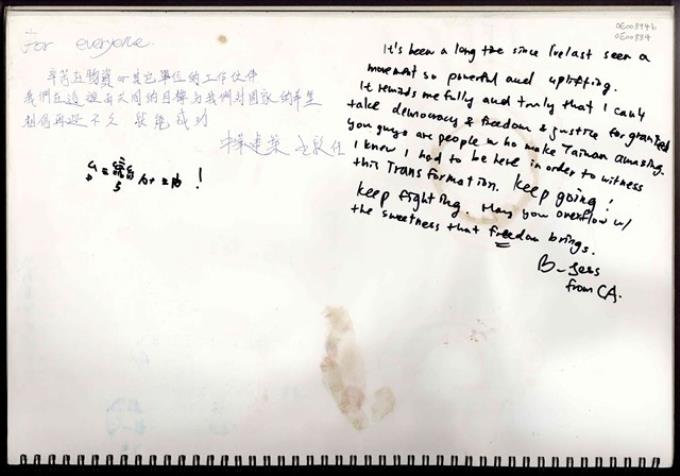 For everyone.
辛苦在物資or其它單位的工作伙伴
我們在這裡有共同的目標与我們對國家的希望
相信再沒不久 就能成功
中華建築
加油!
OE003946
OE00554
It's been a long time since I've last seen a
movement so powerful and uplifting.
It reminds me fully and truly that I can't
take democracy & freedom & justice for granted
you guys are people who make Taiwan amazing.
I knew I had to be here in order to witness
this Transformation. keep going!
keep fighting. May you overflow w/
the sweetness that freedom brings.
B-Jess
from CA.